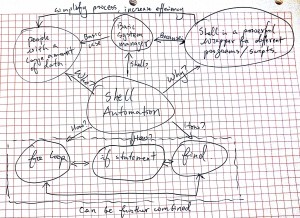 simplify process, increase efficiency
People
with a
large amount
of data
Basic
use
Basic
System
manager
Because
Shell is a powerful
wrapper for different
programs/scripts.
Who?
Shell?
Why?
Shell
Automation
How?
How?
How?
for loop
if statement
find
Can be further combined